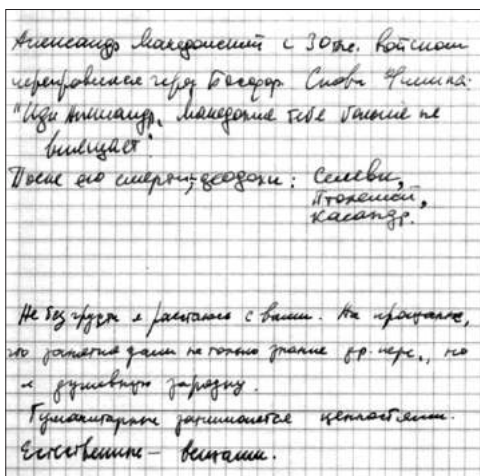 Александр Македонский с 30 тыс. войском
переправился через Босфор. Слова Филиппа:
"Иди Александр, Македония тебе больше не
вмещает".
После его смерти, диадохи: Селевк,
Птолемей,
Касандр.
Не без грусти я расстаюсь с вами. На прощание,
что занятия дали не только знание др. перс., но
и душевную зарядку.
Гуманитарные занимаются ценностями.
Естественные – вещами.